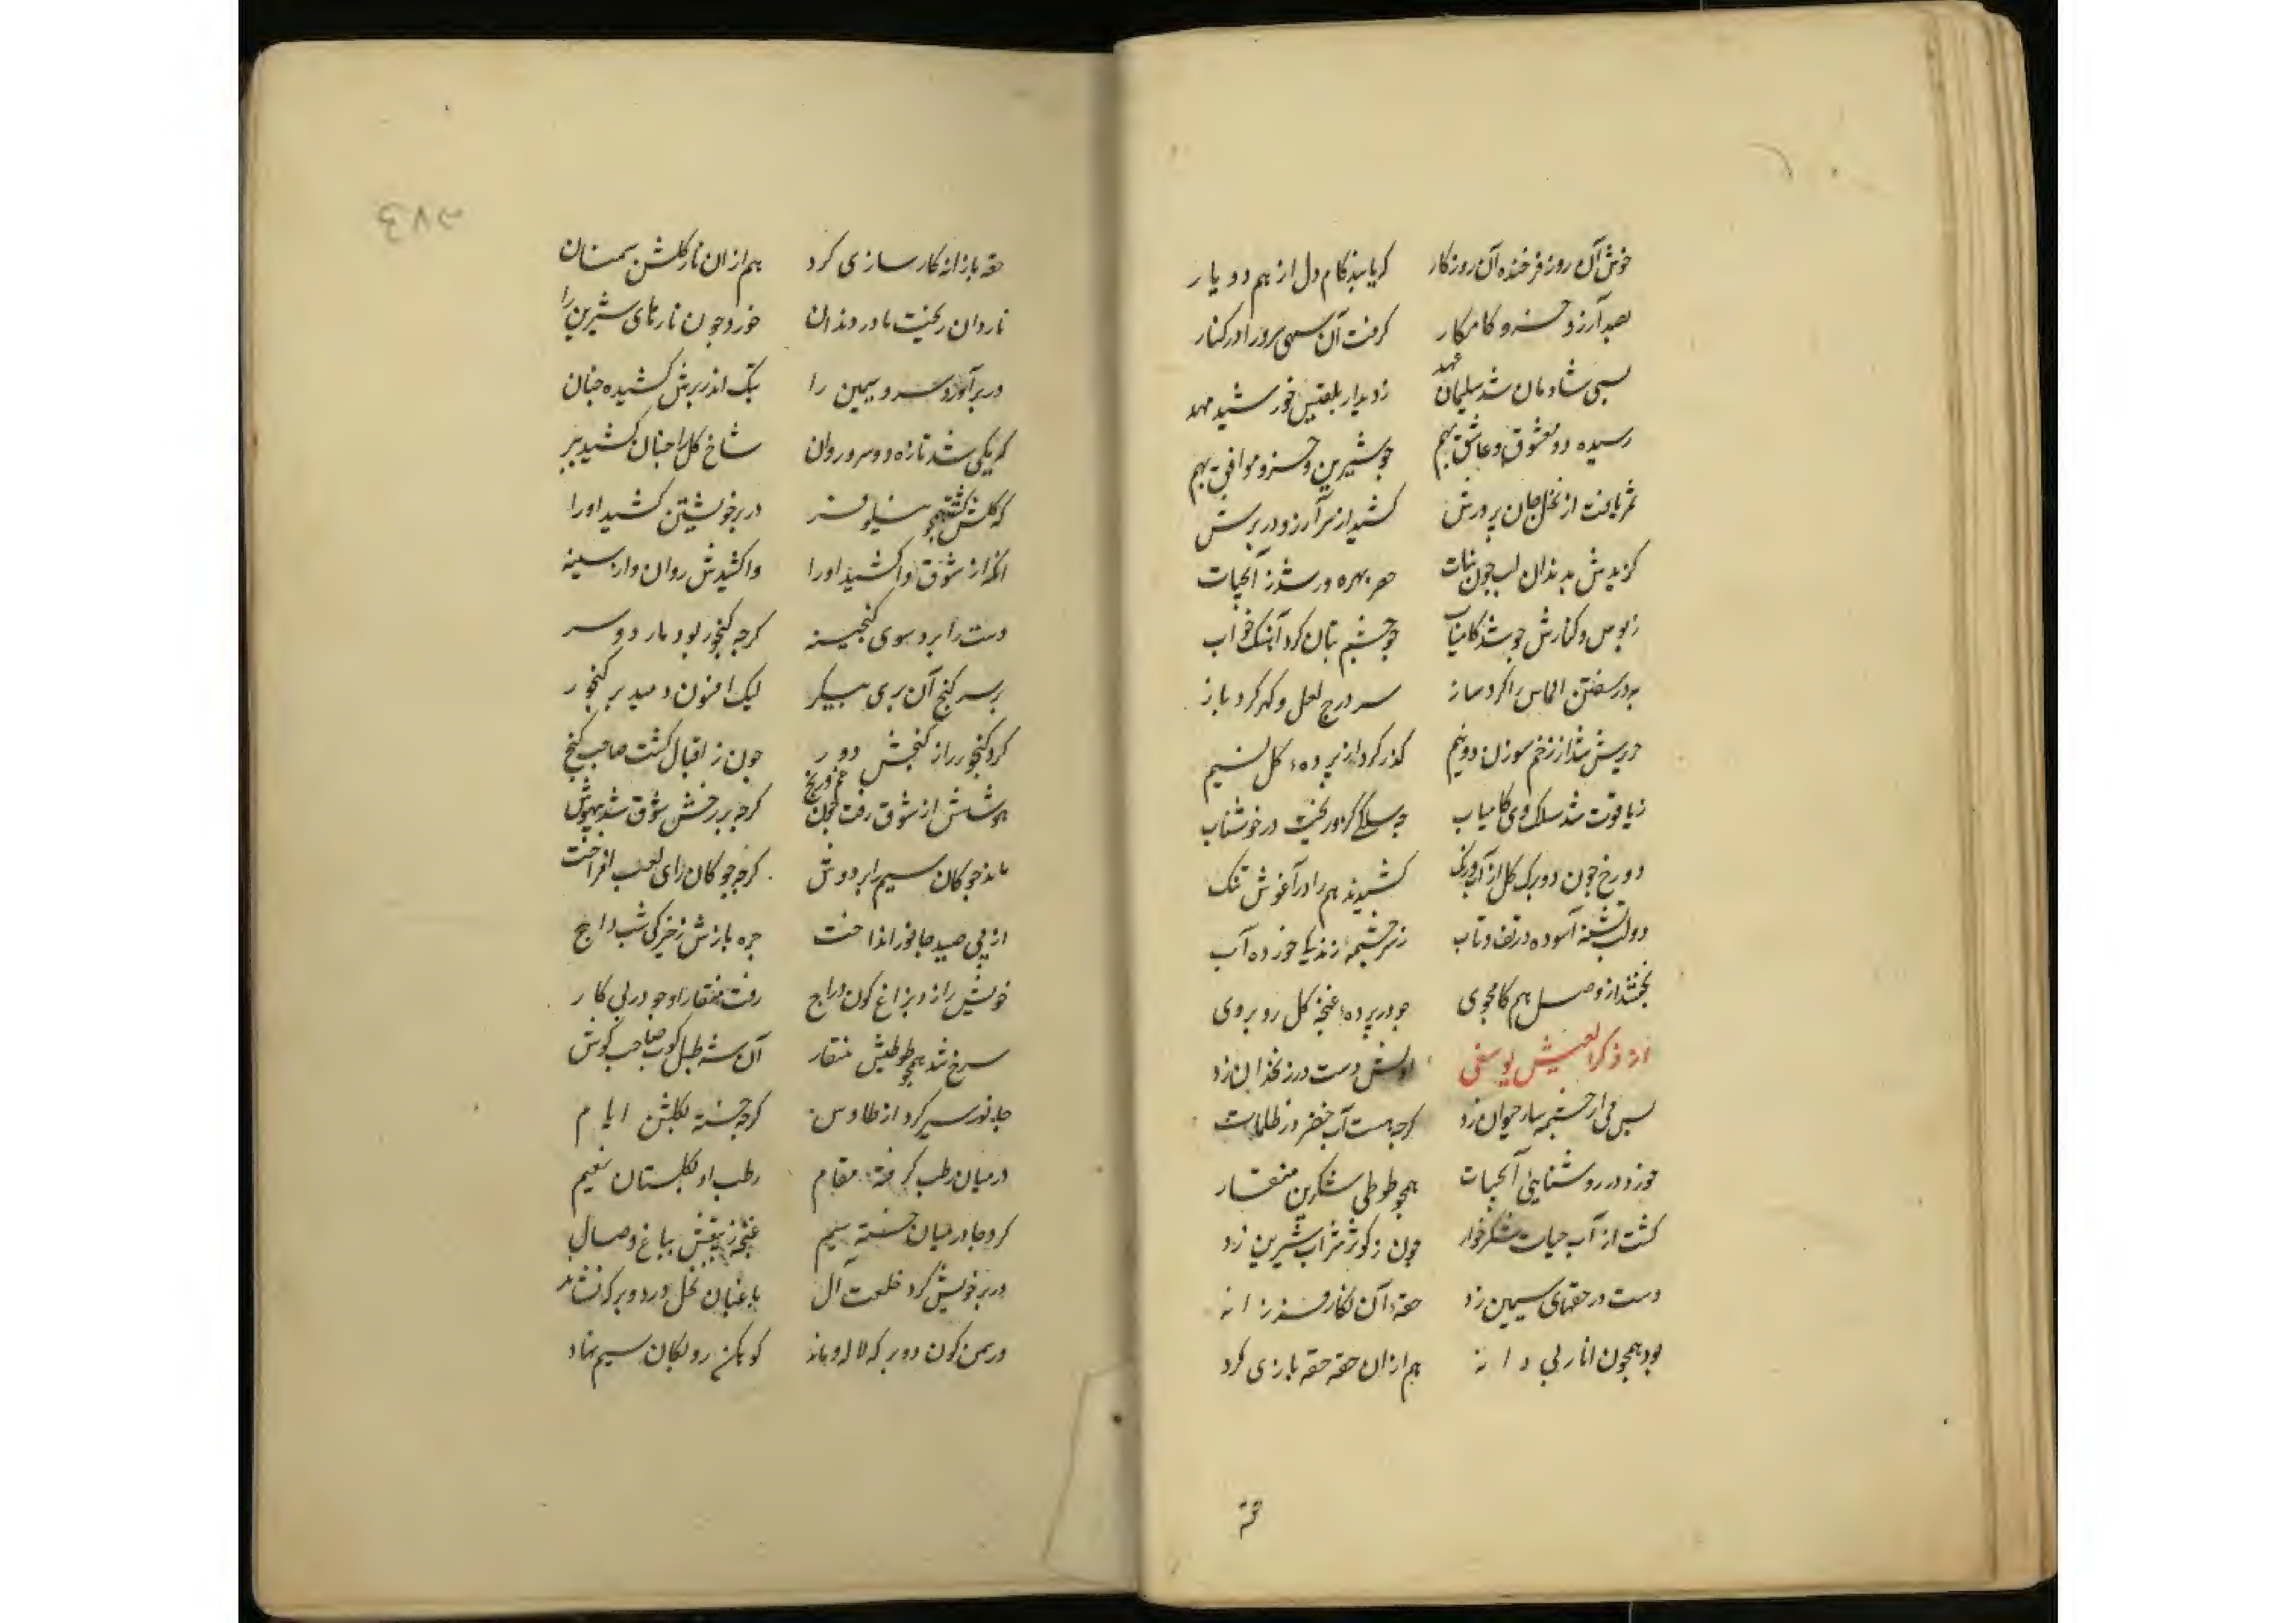 خوش آن روز فرخنده آن روزکار کریابند کام دل از هم دو یار
بصد آرزو خسرو کامکار کرفت آن سهی سرو را در کنار
بسی شادمان شد سلیمان عهد ز دیدار بلقیس خورشید مهد
رسیده دو معشوق و عاشق بهم چو شیرین و خسرو موافق بهم
ثمر یافت از نخل جان پرورش کشید از سر آرزو در برش
کزیدش بدندان لب چون نبات خضر بهره ور شد ز آبحیات
ز بوس و کنارش چو شد کامیاب چو چشم بتان کرد آهنک خواب
بدر سفتن الماس را کرد ساز سر درج لعل و کهر کرد باز
حریرش شد از زخم سوزن دو نیم کذر کرد از پرده کل نسیم
ز یاقوت شد سلک وی کامیاب چه سلکی کزو ریخت در خوشاب
دو رخ چون دو برک کل از آب و رنک کشیدند هم را در آغوش تنک
دو لب تشنه آسوده در تف و تاب ز سرچشمه زندکی خورده آب
بخفتند از وصل هم کامجوی چو در پرده غنچه کل رو بروی
از ذکر العیش یوسفی اولش دست در زنخدان زد
پس می از چشمه سار حیوان زد کرچه هست آب خضر در ظلمات
خورد در روشنایی آبحیات همچو طوطی شکرین منقار
کشت از آب حیات شکرخوار چون ز کوثر شراب شیرین زد
دست در حقهای سیمین زد حقه آن نکار فرزانه
بود همچون انار بی دانه هم از ان حقه حقه بازی کرد
حقه بازانه کارسازی کرد هم از ان نار کلشن سمنان
ناردان ریخت نادر دندان خورد چون نارهای شیرین را
در بر آورد سرو سیمین را تنک اندر برش کشیده چنان
که یکی شد تازه دو سرو روان شاخ کل را چنان کشید ببر
که کلش کشت همچو نیلوفر در بر خویشتن کشید او را
آنکه از شوق واکشید او را واکشیدش روان و از سینه
دست را برد سوی کنجینه کرچه کنجور بود مار دو سر
بر سر کنج آن پری پیکر لیک افسون دمید بر کنجور
کرد کنجور را ز کنجش دور چون ز اقبال کشت صاحب کنج
هوشش از شوق رفت کرچه بر رخش شوق شد بیهوش
ماند چو کان سیم را بر دوش کرچه چو کان ز رای لعب افراخت
از پی صید جانور انداخت چره بازش ز خیرکی شب داج
خویش را زد بزاغ کون دراج رفت منقار او چو در پی کار
سرخ شد همچو طوطیش منقار آن شه طبل کوب صاحب کوش
جانور سیر کرد از طاوس کرچه خسته بکلشن ایام
در میان رطب کرفته مقام رطب او بکلستان نعیم
کرد جا در میان خسته سیم غنچه زنبقش بباغ وصال
در بر خویش کرد خلعت آل باغبان نخل ورد و بر که نشاند
در سمن کون دو بر که لاله و ماند کوهکن رو بکان سیم نهاد
حقه
۲۸۳